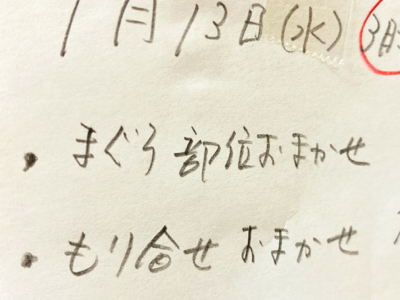 1月13日(水)
・まぐろ 部位おまかせ
・もり合せ おまかせ